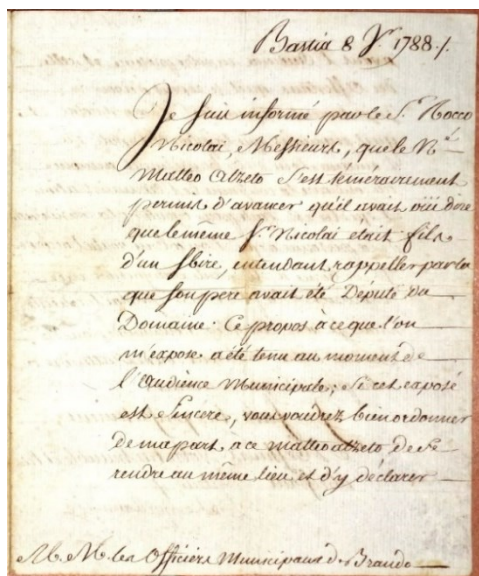 Bastia 8 Jer. 1788./.
Je suis informé par le Sr. Rocco
Nicolai, Messieurs, que le Né.
Matteo Alzeto s'est témérairement
permis d'avancer qu'il avait oüi dire
que le même Sr. Nicolai etait fils
d'un sbire, entendant rappeller par la
que son pere avait été Député du
Domaine. Ce propos à ce que l'on
m'expose a été tenu au moment de
l'Audience Municipale; Si cet exposé
est sincere, vous voudrez bien ordonner
de ma part, a ce Matteo alzeto de se
rendre au même lieu et d'y déclarer
M. M. les Officiers Municipaux de Brando